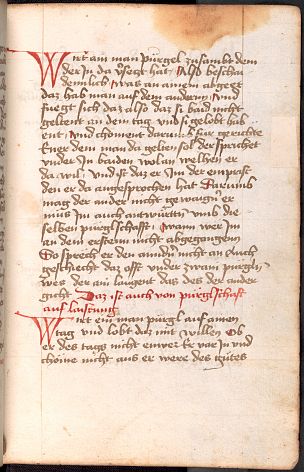 Wirt ain man pürgel zusambt dem
der In da v̈sagt hat / Also beschai
denlich / was an ainem abgeet
daz hab man auf dem anderen / Vnd
fuegt sich daz also daz si baid nicht
geltent an dem tag vnd si gelobt hab
ent / Vnd choment darumb für gerichte
Ener dem man da gelten sol der sprichet
vnder In baiden wolan welhen er
da wil / vnd ist daz er In der enpast
den er da angesprochen hat Darumb
mag der ander nicht gewaigern er
mus In auch antwürtten vmb die
selben pürglschafft / Wann wer In
an dem ersten nicht abgegangen
So sprech er den andern nicht an Auch
geschiecht daz offt vnder zwain pürgeln
wes der ain laugent das des der ander
gicht Daz ist auch von pürglschaft
auf laistung
Wirt ein man pürgl auf ainen
tag vnd lobt daz mit willen Ob
er des tags nicht enwert Er var In vnd
chöme nicht aus er were des gutes